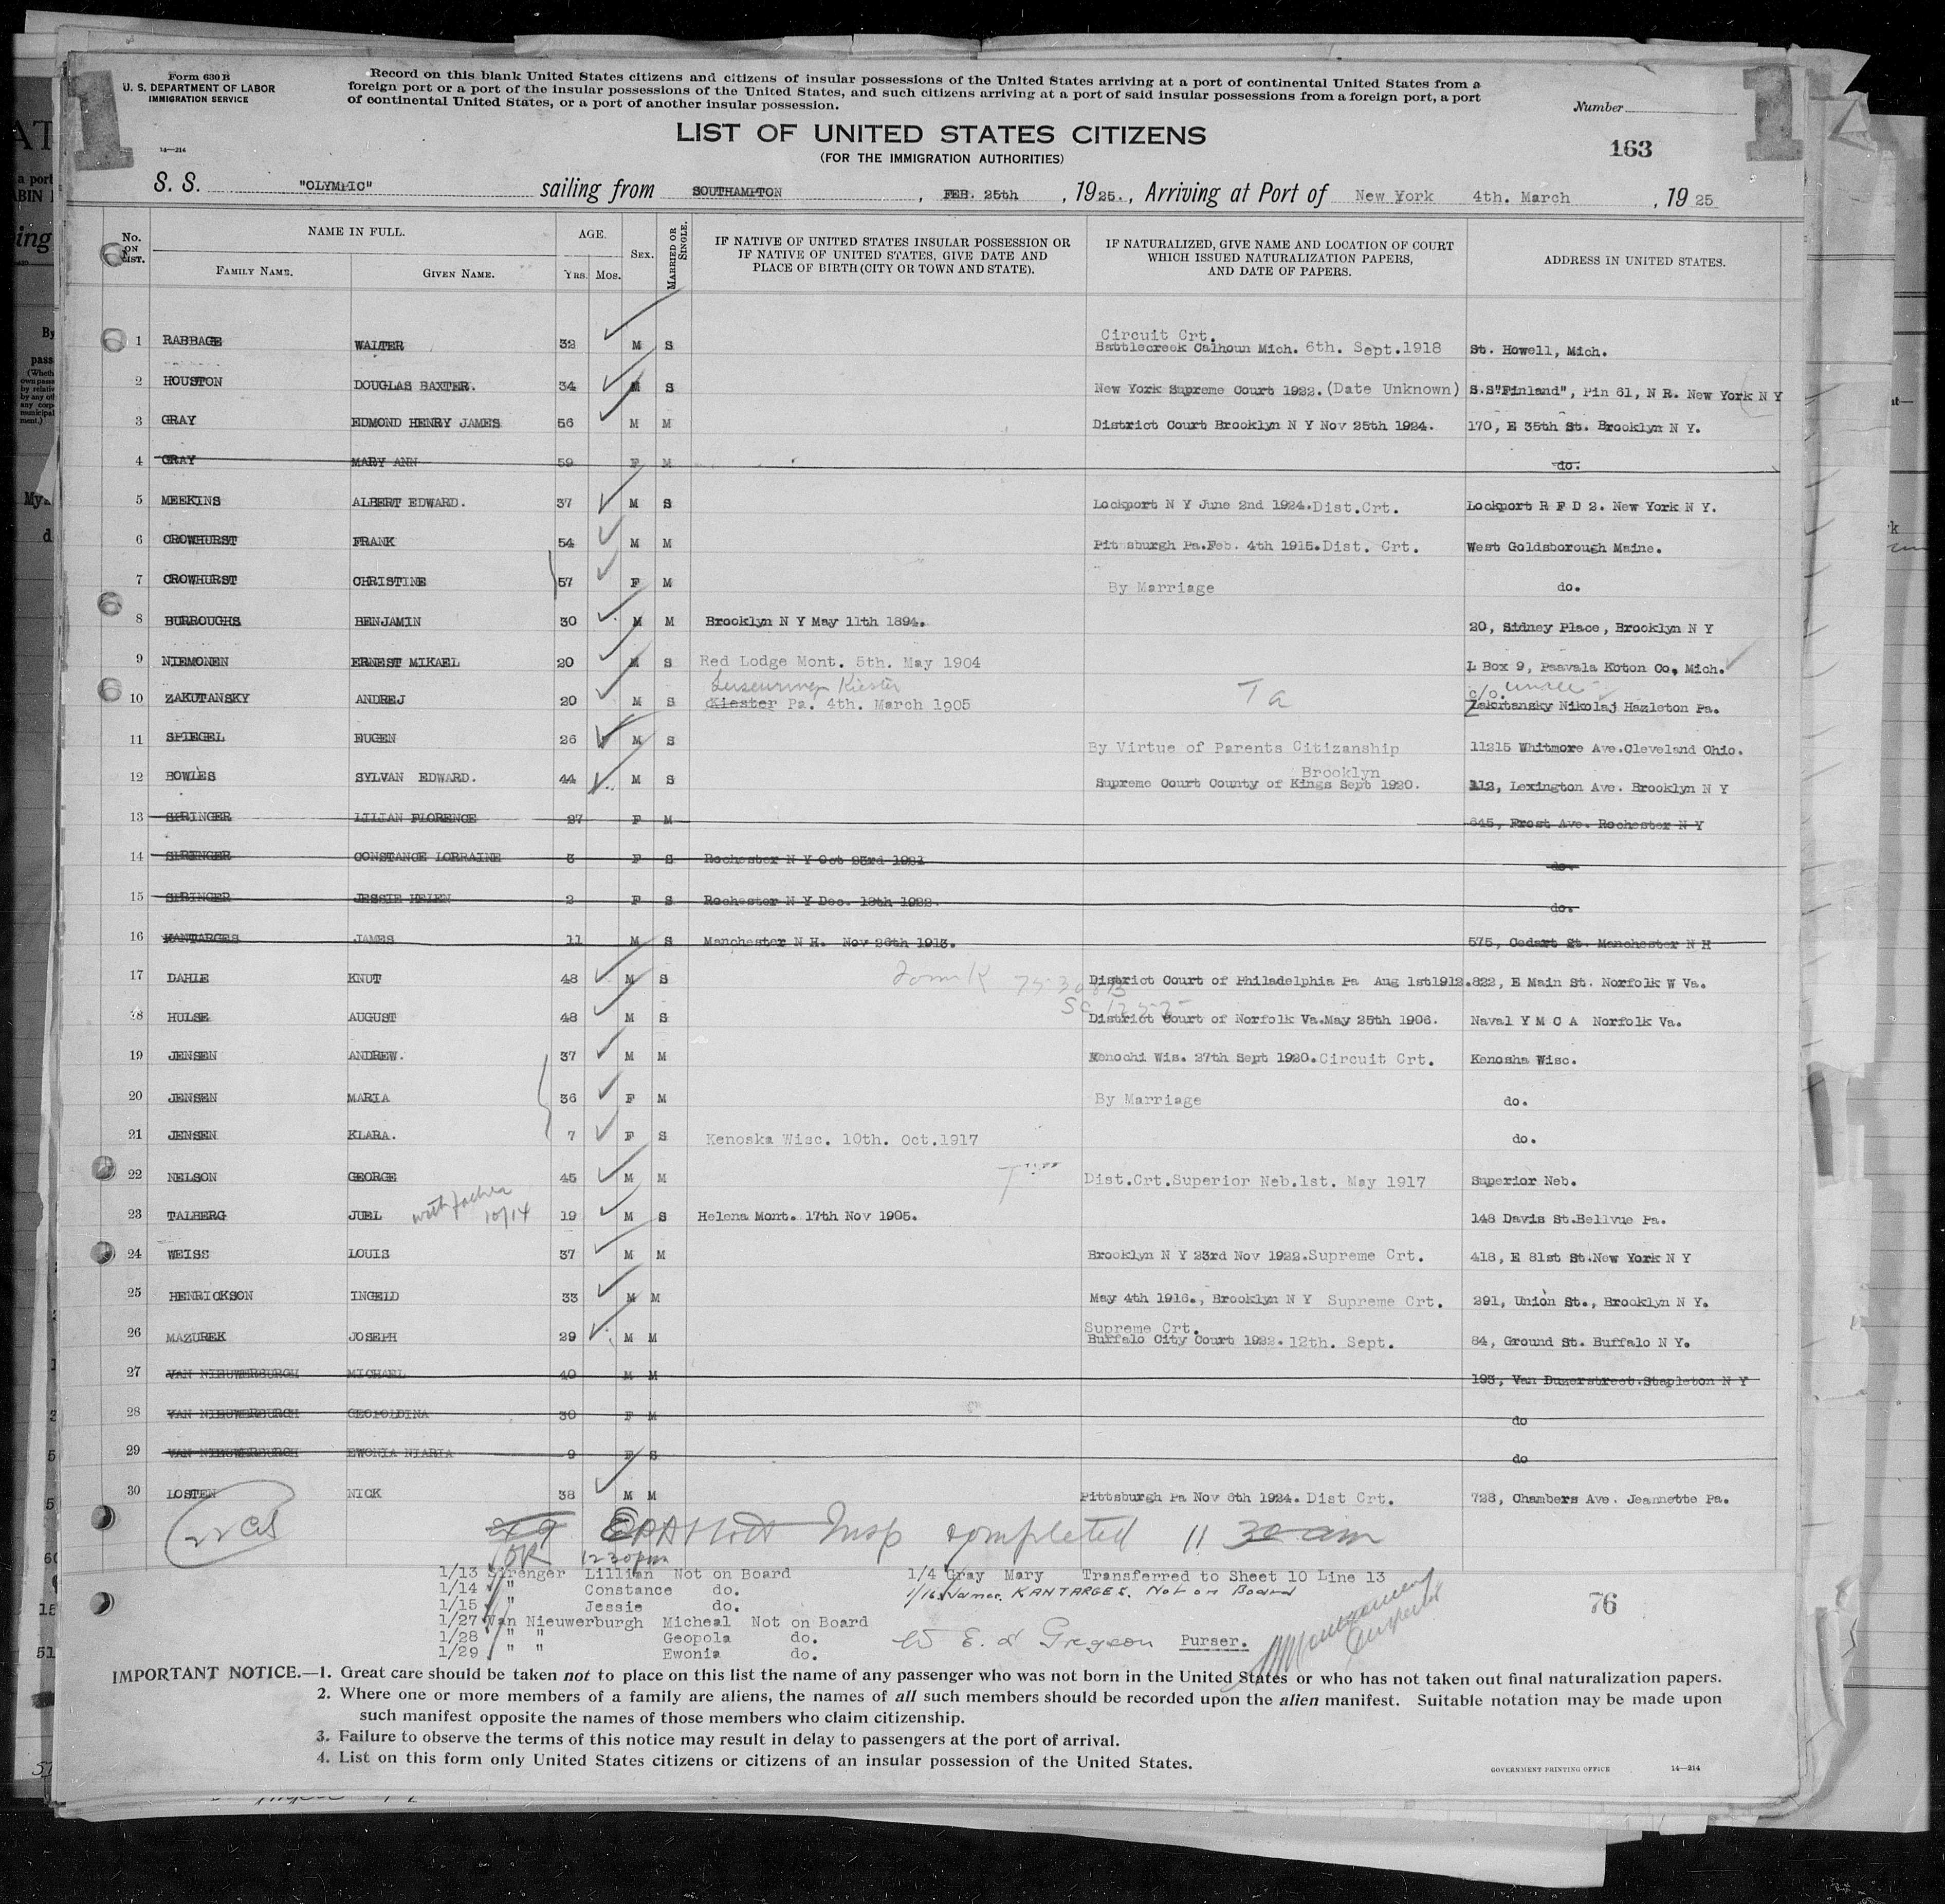 Form 630 B
U. S. DEPARTMENT OF LABOR
IMMIGRATION SERVICE
14—214
Record on this blank United States citizens and citizens of insular possessions of the United States arriving at a port of continental United States from a
foreign port or a port of the insular possessions of the United States, and such citizens arriving at a port of said insular possessions from a foreign port, a port
of continental United States, or a port of another insular possession.
Number
1 1
LIST OF UNITED STATES CITIZENS
(FOR THE IMMIGRATION AUTHORITIES)
163
S. S. "OLYMPIC" sailing from SOUTHAMPTON, FEB. 25th, 1925., Arriving at Port of New York 4th. March, 1925
No. ON LIST. NAME IN FULL. AGE. SEX. MARRIED OR SINGLE. IF NATIVE OF UNITED STATES INSULAR POSSESSION OR IF NATIVE OF UNITED STATES, GIVE DATE AND PLACE OF BIRTH (CITY OR TOWN AND STATE). IF NATURALIZED, GIVE NAME AND LOCATION OF COURT WHICH ISSUED NATURALIZATION PAPERS, AND DATE OF PAPERS. ADDRESS IN UNITED STATES.
FAMILY NAME. GIVEN NAME. YRS. MOS.
1 RABBAGE WALTER 32 M S Circuit Crt. Battlecreek Calhoun Mich. 6th. Sept.1918 St. Howell, Mich.
2 HOUSTON DOUGLAS BAXTER. 34 M S New York Supreme Court 1922. (Date Unknown) S.S"Finland", Pin 61, N R. New York N Y
3 GRAY EDMOND HENRY JAMES 56 M M District Court Brooklyn N Y Nov 25th 1924. 170, E 35th St. Brooklyn N Y.
4 GRAY MARY ANN 59 F M do.
5 MEEKINS ALBERT EDWARD. 37 M S Lockport N Y June 2nd 1924. Dist.Crt. Lockport R F D 2. New York N Y.
6 CROWHURST FRANK 54 M M Pittsburgh Pa.Feb. 4th 1915. Dist. Crt. West Goldsborough Maine.
7 CROWHURST CHRISTINE 57 F M By Marriage do.
8 BURROUGHS BENJAMIN 30 M M Brooklyn N Y May 11th 1894. 20, Sidney Place, Brooklyn N Y
9 NIEMONEN ERNEST MIKAEL 20 M S Red Lodge Mont. 5th. May 1904 L Box 9, Paavala Koton Co, Mich.
10 ZAKUTANSKY ANDREJ 20 M S Kiester Kiester Pa. 4th. March 1905 Ta c/o. uncle Zakutansky Nikolaj Hazleton Pa.
11 SPIEGEL EUGEN 26 M S By Virtue of Parents Citizanship 11215 Whitmore Ave.Cleveland Ohio.
12 BOWLES SYLVAN EDWARD. 44 M S Supreme Court County of Kings Brooklyn Sept 1920. 112, Lexington Ave. Brooklyn N Y
13 SPRINGER LILIAN FLORENCE 27 F M 645, Frost Ave. Rochester N Y
14 SPRINGER CONSTANCE LORRAINE 3 F S Rochester N Y Oct 23rd 1921 do.
15 SPRINGER JESSIE HELEN 2 F S Rochester N Y Dec. 13th 1922. do.
16 KANTARGES JAMES 11 M S Manchester N H. Nov 26th 1913. 575, Cedart St. Manchester N H
17 DAHLE KNUT 48 M S District Court of Philadelphia Pa Aug 1st1912. 822, E Main St. Norfolk W Va.
18 HULSE AUGUST 48 M S District Court of Norfolk Va.May 25th 1906. Naval Y M C A Norfolk Va.
19 JENSEN ANDREW. 37 M M Kenochi Wis. 27th Sept 1920. Circuit Crt. Kenosha Wisc.
20 JENSEN MARIA 36 F M By Marriage do.
21 JENSEN KLARA. 7 F S Kenoska Wisc. 10th. Oct.1917 do.
22 NELSON GEORGE 45 M M Dist.Crt.Superior Neb.1st. May 1917 Superior Neb.
23 TALBERG JUEL with father 10/14 19 M S Helena Mont. 17th Nov 1905. 148 Davis St.Bellvue Pa.
24 WEISS LOUIS 37 M M Brooklyn N Y 23rd Nov 1922. Supreme Crt. 418, E 81st St.New York N Y
25 HENRICKSON INGELD 33 M M May 4th 1916., Brooklyn N Y Supreme Crt. 291, Union St., Brooklyn N Y.
26 MAZUREK JOSEPH 29 M M Supreme Crt. Buffalo City Court 1922. 12th. Sept. 84, Ground St. Buffalo N Y.
27 VAN NIEUWERBURGH MICHAEL 40 M M 193, Van Duzerstreet.Stapleton N Y
28 VAN NIEUWERBURGH GEOPOLDINA 30 F M do
29 VAN NIEUWERBURGH EWONIA NIARIA 9 F S do
30 LOSTEN NICK 38 M M Pittsburgh Pa Nov 6th 1924. Dist Crt. 728, Chambers Ave. Jeannette Pa.
Insp completed 11 30 am
OK 12 30 pm
1/13 Sprenger Lillian Not on Board
1/14 " Constance do.
1/15 " Jessie do.
1/27 Van Nieuwerburgh Micheal Not on Board
1/28 " " Geopola do.
1/29 " " Ewonia do.
1/4 Gray Mary Transferred to Sheet 10 Line 13
1/16. James. KANTARGES. Not on Board
Purser.
76
IMPORTANT NOTICE.—1. Great care should be taken not to place on this list the name of any passenger who was not born in the United States or who has not taken out final naturalization papers.
2. Where one or more members of a family are aliens, the names of all such members should be recorded upon the alien manifest. Suitable notation may be made upon
such manifest opposite the names of those members who claim citizenship.
3. Failure to observe the terms of this notice may result in delay to passengers at the port of arrival.
4. List on this form only United States citizens or citizens of an insular possession of the United States.
GOVERNMENT PRINTING OFFICE 14—214